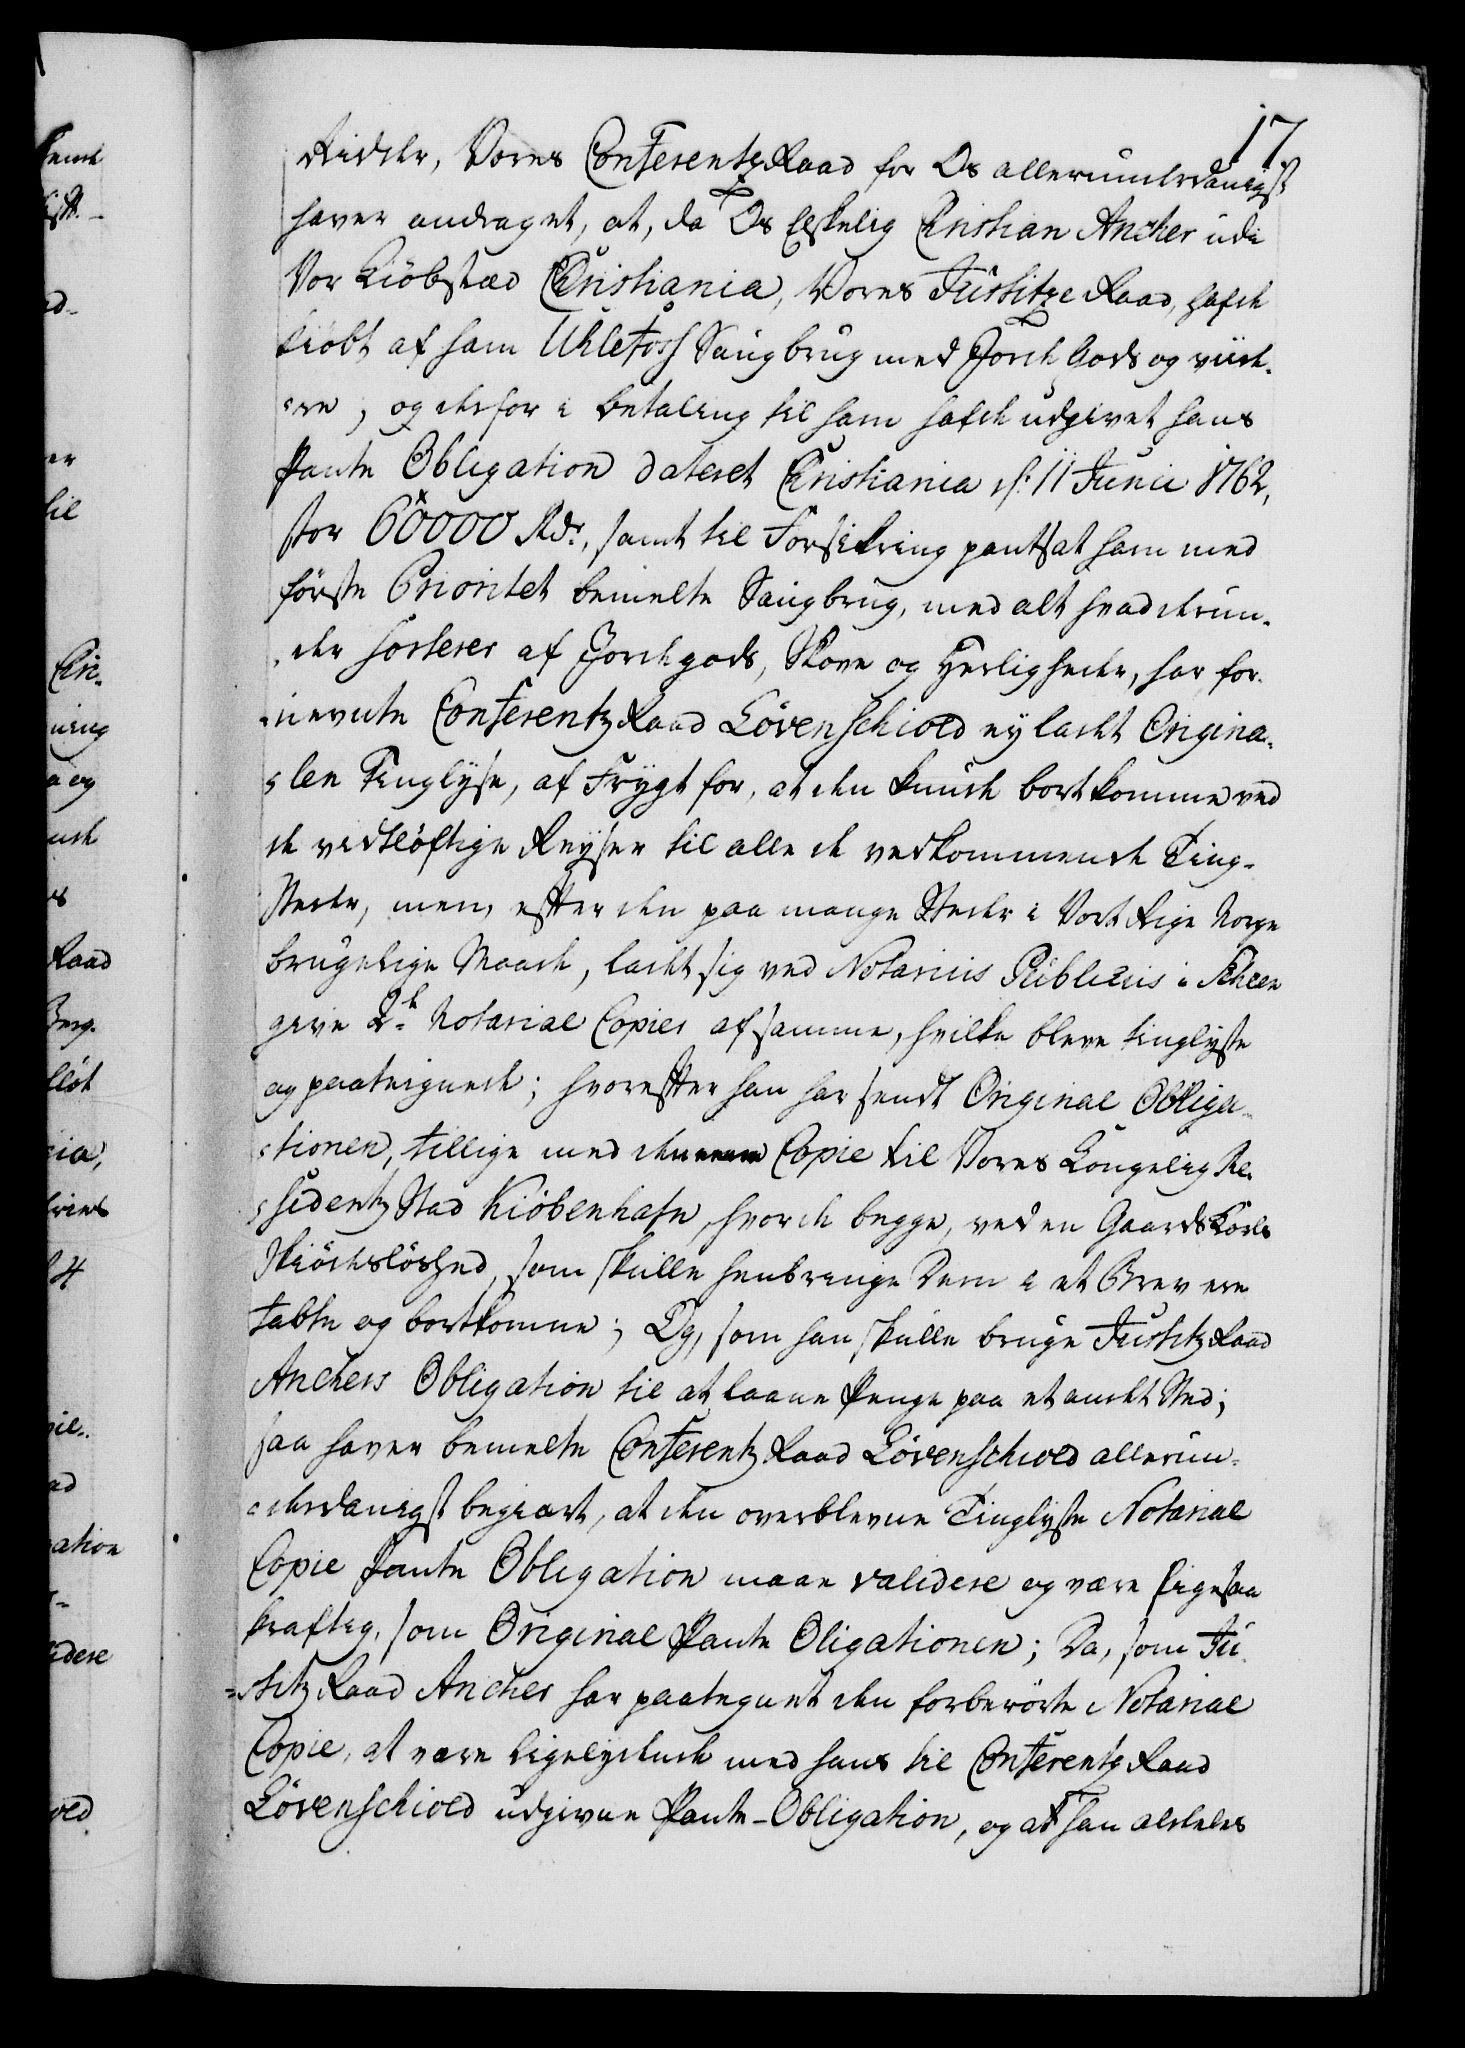 17
Ridder, Vores ConferentzRaad for Os allerunderdanigst
haver andraget, at, da Os Elskelig Christian Ancher udi
Vor Kiöbstæd Christiania, Vores JustitzeRaad, hafde
kiöbt af ham Uhlefoss Saugbrug med Jorde Gods og viid-
ere, og derfor i betaling til ham hafde udgivet hans
Pante Obligation dateret Christiania d: 11 Junii 1762,
stor 60000 Rdr, samt til Forsikring pantsat ham med
förste Prioritet bemelte Saugbrug, med alt hvad derun-
der sorterer af Jordegods, Skove og Herligheder, har for-
nevnte ConferentzRaad Lövenschiold ey ladet Origina-
len Tinglyse, af Frygt for, at den kunde bortkomme ved
de vidtlöftige Reyser til alle de vedkommende Ting-
Steder, men, efter den paa mange Steder i Vort Rige Norge
brugelige Maade, ladet sig ved Notarius Publicus i Scheen
give 2de Notarial Copier af samme, hvilke bleve tinglyste
og paategnede; hvorefter han har sendt Original Obliga-
tionen, tillige med den eene Copie til Vores Kongelig Re-
sidentz Stad Kiöbenhafn, hvor de begge, ved en Gaards Karls
Skiödeslöshed, som skulle henbringe Dem i et Brev ere
tabte og bortkomne; Og, som han skulle bruge JustitzRaad
Anchers Obligation til at laane Penge paa et andet Sted;
saa haver bemelte ConferentzRaad Lövenschiold allerun-
derdanigst begiært, at den overblevne Tinglyste Notarial
Copie Pante Obligation maae validere og være ligesaa
kraftig, som Original Pante Oligationen; Da, som Ju-
stitzRaad Ancher har paategnet den forberörte Notarial
Copie, at være ligelydende med hans til ConferentzRaad
Lövenschiold udgivne Pante-Obligation, og at han aldeles